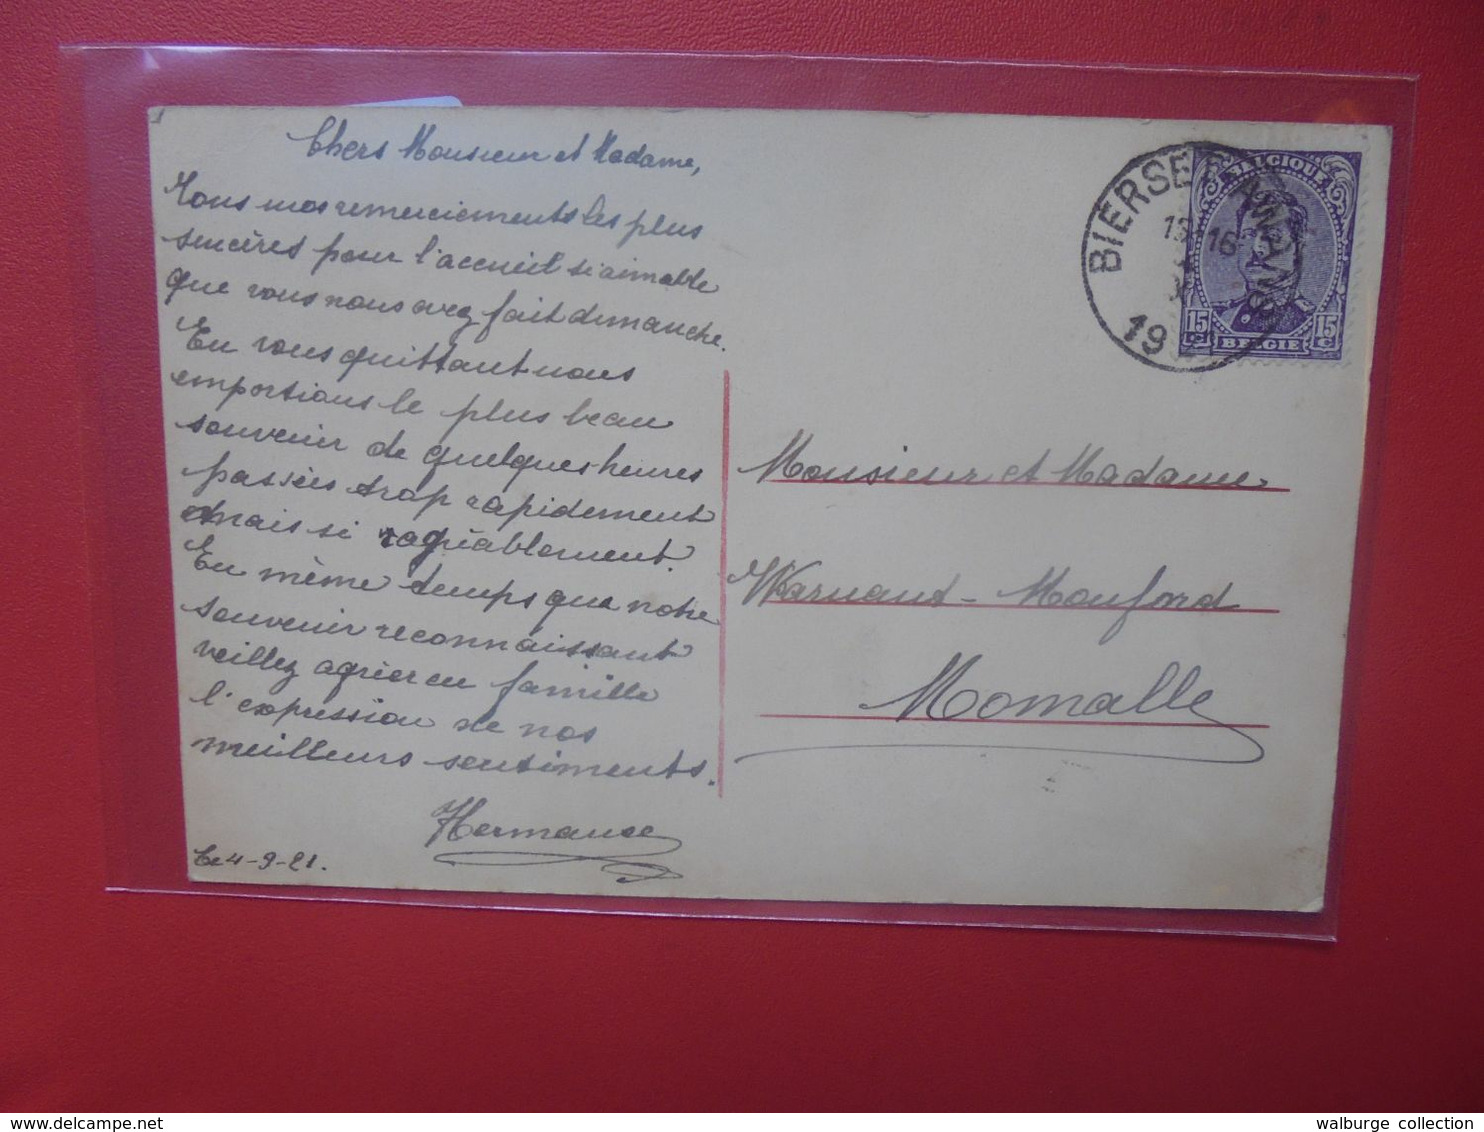 Chers Monsieur et Madame,
Tous mos remerciements les plus
sincères pour l'accueil si aimable
que vous nous avez fait dimanche.
En vous quittant nous
emportions le plus beau
souvenir de quelques heures
passées trop rapidement
mais si agréablement.
En même temps que notre
souvenir reconnaissant
veillez agréer en famille
l'expression de nos
meilleurs sentiments.
Hermance
Le 4-9-21.
BIERSET AWANS
16
19
BELGIQUE
15 C 15 C
BELGIE
Monsieur et Madame
Warnant - Monford
Momalle
walburge collection